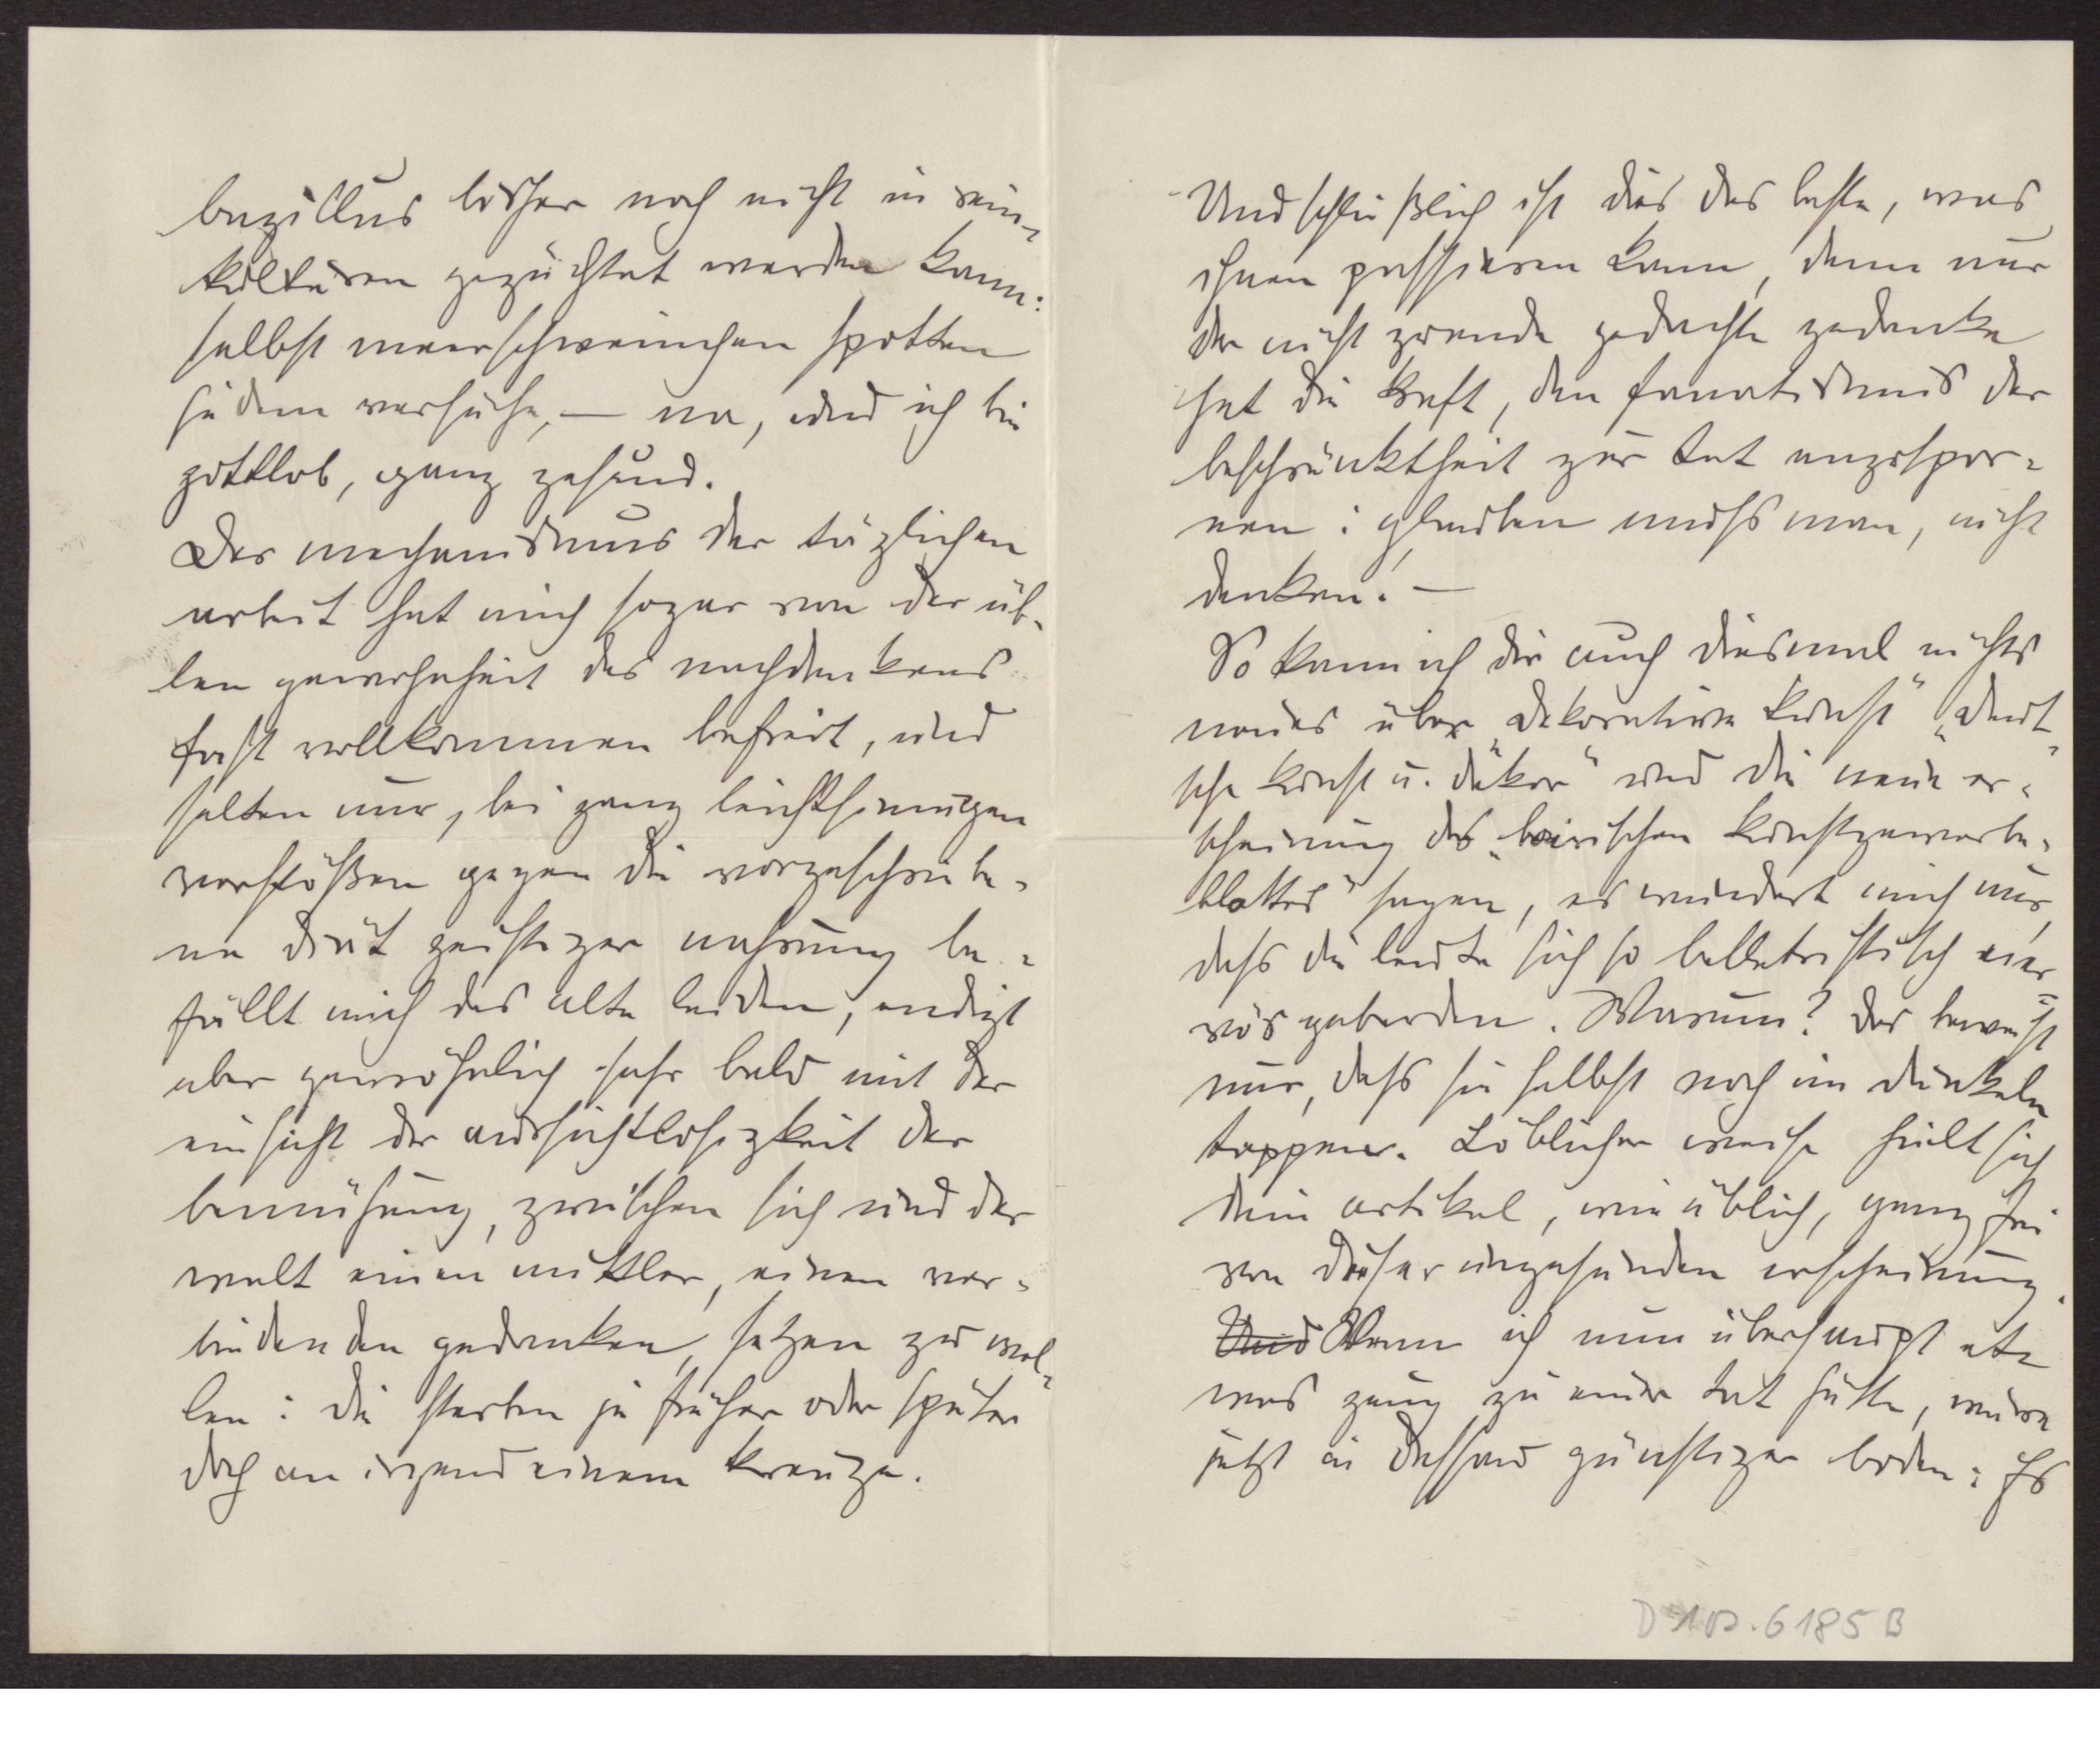 bazillus bisher noch nicht in rein-
kulturen gezüchtet werden kann:
selbst meerschweinchen spotten
jedem versuche, — na, und ich bin
gottlob, ganz gesund.
Der mechanismus der täglichen
arbeit hat mich sogar von der üb-
len gewohnheit des nachdenkens
fast vollkommen befreit, und
selten nur, bei ganz leichtsinnigen
verstößen gegen die vorgeschriebe-
ne diät geistiger nahrung be-
fällt mich das alte leiden, endigt
aber gewöhnlich sehr bald mit der
einsicht der aussichtlosigkeit der
bemühung, zwischen sich und der
welt einen mittler, einen ver-
bindenden gedanken, setzen zu wol-
len: die sterben ja früher oder später
doch an irgend einem kreuze.
Und schließlich ist dies das beste, was
ihnen passieren kann, denn nur
der nicht zu ende gedachte gedanke
hat die kraft, den fanatismus der
beschränktheit zur tat anzuspor-
nen: glauben muss man, nicht
denken. —
So kann ich dir auch diesmal nichts
neues über „dekorative kunst" „deut-
sche kunst u. dekor" und die neue er-
scheinung des „bairischen kunstgewerbe-
blattes" sagen, es wundert mich nur,
dass die leute sich so belletristisch ner-
vös geberden. Warum? Das beweist
nur, dass sie selbst noch im dunkeln
tappen. Löblicher weise hielt sich
dein artikel, wie üblich, ganz frei
von dieser ungesunden erscheinung.
Und Wenn ich nun überhaupt et-
was zeug zu einer tat hätte, wäre
jetzt in Dessau günstiger boden: Es
D 100.6185 B